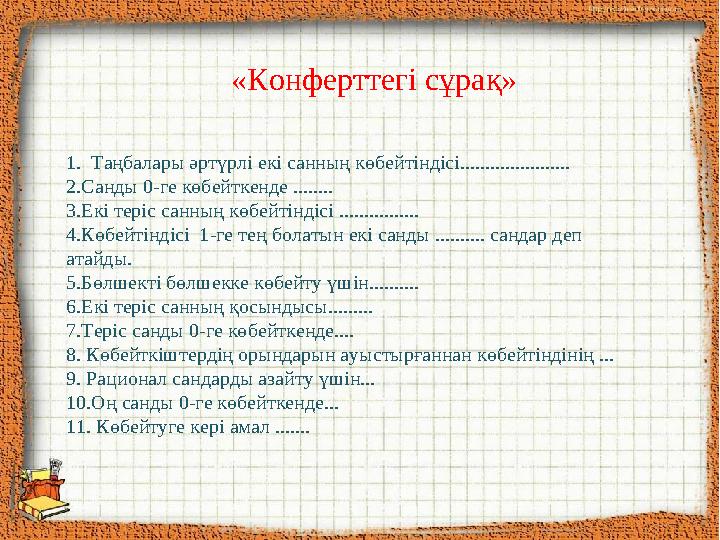 «Конферттегі сұрақ»
1.  Таңбалары әртүрлі екі санның көбейтіндісі......................
2.Санды 0-ге көбейткенде ........
3.Екі теріс санның көбейтіндісі ................
4.Көбейтіндісі  1-ге тең болатын екі санды .......... сандар деп
атайды.
5.Бөлшекті бөлшекке көбейту үшін..........
6.Екі теріс санның қосындысы.........
7.Теріс санды 0-ге көбейткенде....
8. Көбейткіштердің орындарын ауыстырғаннан көбейтіндінің ...
9. Рационал сандарды азайту үшін...
10.Оң санды 0-ге көбейткенде...
11. Көбейтуге кері амал .......